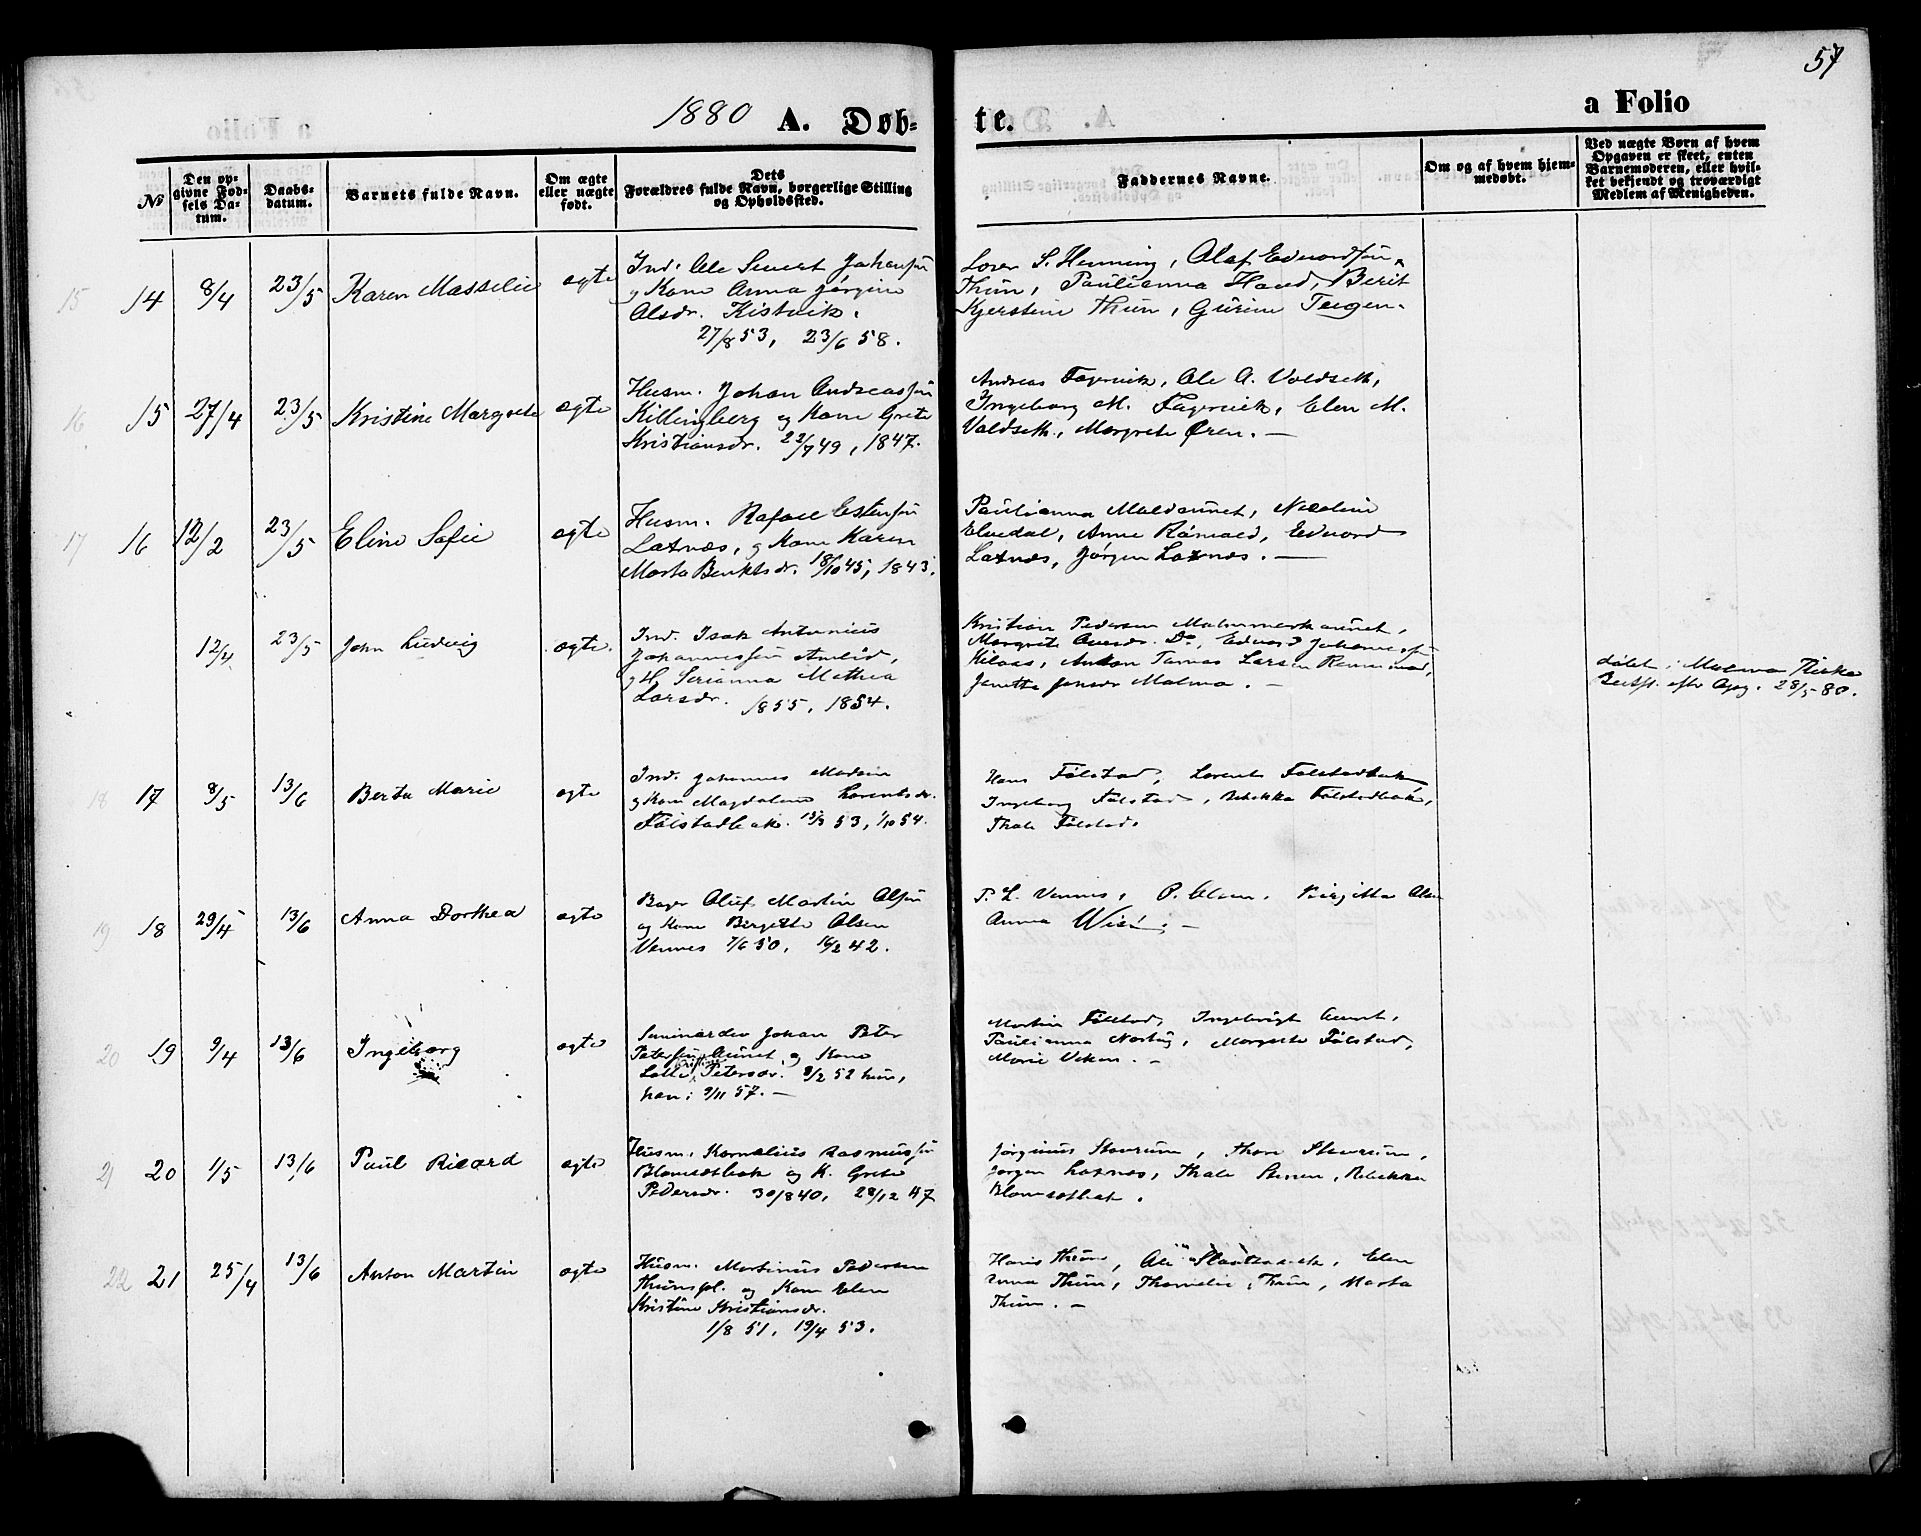 57
1880 A. Døb-
te.
a Folio
№
Den op-
givne Fød-
sels Da-
tum.
Daabs-
datum.
Barnets fulde Navn.
Om ægte
eller uægte
født.
Dets
Forældres fulde Navn, borgerlige Stilling
og Opholdssted.
Faddernes Navne.
Om og af hvem hjem-
medøbt.
Ved uægte Børn af hvem
Opgaven er skeet, enten
Barnemoderen, eller hvil-
ket bekjendt og troværdigt
Medlem af Menigheden.
15 14 8/4 23/5 Karen Masselie ægte
Ind. Ole Sivert Johansen
og Kone Anna Jørgine
Olsdr. Kistvik.
27/8 53, 23/6 58.
S. Henning, Olaf Edvardsen
Thun, Paulianna Haad, Berit
Kjerstine Thun, Gurine Teigen.
16 15 27/4 23/5 Kristine Margrete ægte
Husm. Johan Andreassen
Killingberg og Kone Grete
Kristiansdr. 22/7 49, 1847.
Andreas Fagervik, Ole A. Voldseth,
Ingeborg M. Fagervik, Elen M.
Voldseth, Margrete Øren. —
17 16 12/2 23/5 Eline Sofie ægte
Husm. Rafael Estensen
Laxnæs, og Kone Karen
Marta Benktsdr. 18/10 45, 1843.
Paulianna Maldaunet, Nicoline
Elvedal, Anne Edvard
Laxnæs, Jørgen Laxnæs. —
12/4 23/5 John Ludvig ægte.
Ind. Isak Antonius
Johannessen
og H. Serianna Mathea
Larsdr. 1855, 1854.
Kristian Pedersen
Margrete Do, Edvard Johannessen
Anton Larsen
Janetta Jonsdr Malma. —
døbt i Malma Kirke
efter Opg. 28/5 80.
18 17 8/5 13/6 Berta Marie ægte
Ind. Johannes
og Kone Magdalena Lorentsdr.
Følstadbak. 13/3 53, 1/10 54.
Hans Følstad, Lorents Følstadbak,
Ingeborg Følstad, Rebekka Følstadbak,
Thale Følstad.
19 18 29/4 13/6 Anna Dorthea ægte
Bager Oluf Martin Olsen
og Kone Birgitte Olsen
Vennes 7/6 50, 16/2 42.
P. L. Vennes, P. Olsen, Birgitta Olsen
Anna —
20 19 9/4 13/6 Ingeborg ægte
Johan Peter
Petersen Aunet og Kone
Petersdr. 9/2 52 hun,
han: 9/11 57. —
Martin Følstad, Ingebrigt Aunet,
Paulianna Margrete Følstad,
Marie —
21 20 1/5 13/6 Paul Ricard ægte
Husm. Kornelius Rasmussen
og K. Grete
Pedersdr. 30/8 40, 28/12 47
Jørginus Stavrum, Thore Stavrum,
Jørgen Laxnes, Thale Rebekka
22 21 25/4 13/6 Anton Martin ægte
Husm. Martinus Pedersen
Thunspl. og Kone Elen
Kristine Kristiansdr.
1/8 51, 19/4 53.
Hans Thun, Ole Elen
Anna Thun, Thun, Marta
Thun. —